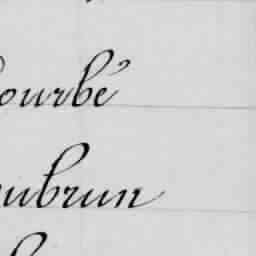 ourbé
ubrun